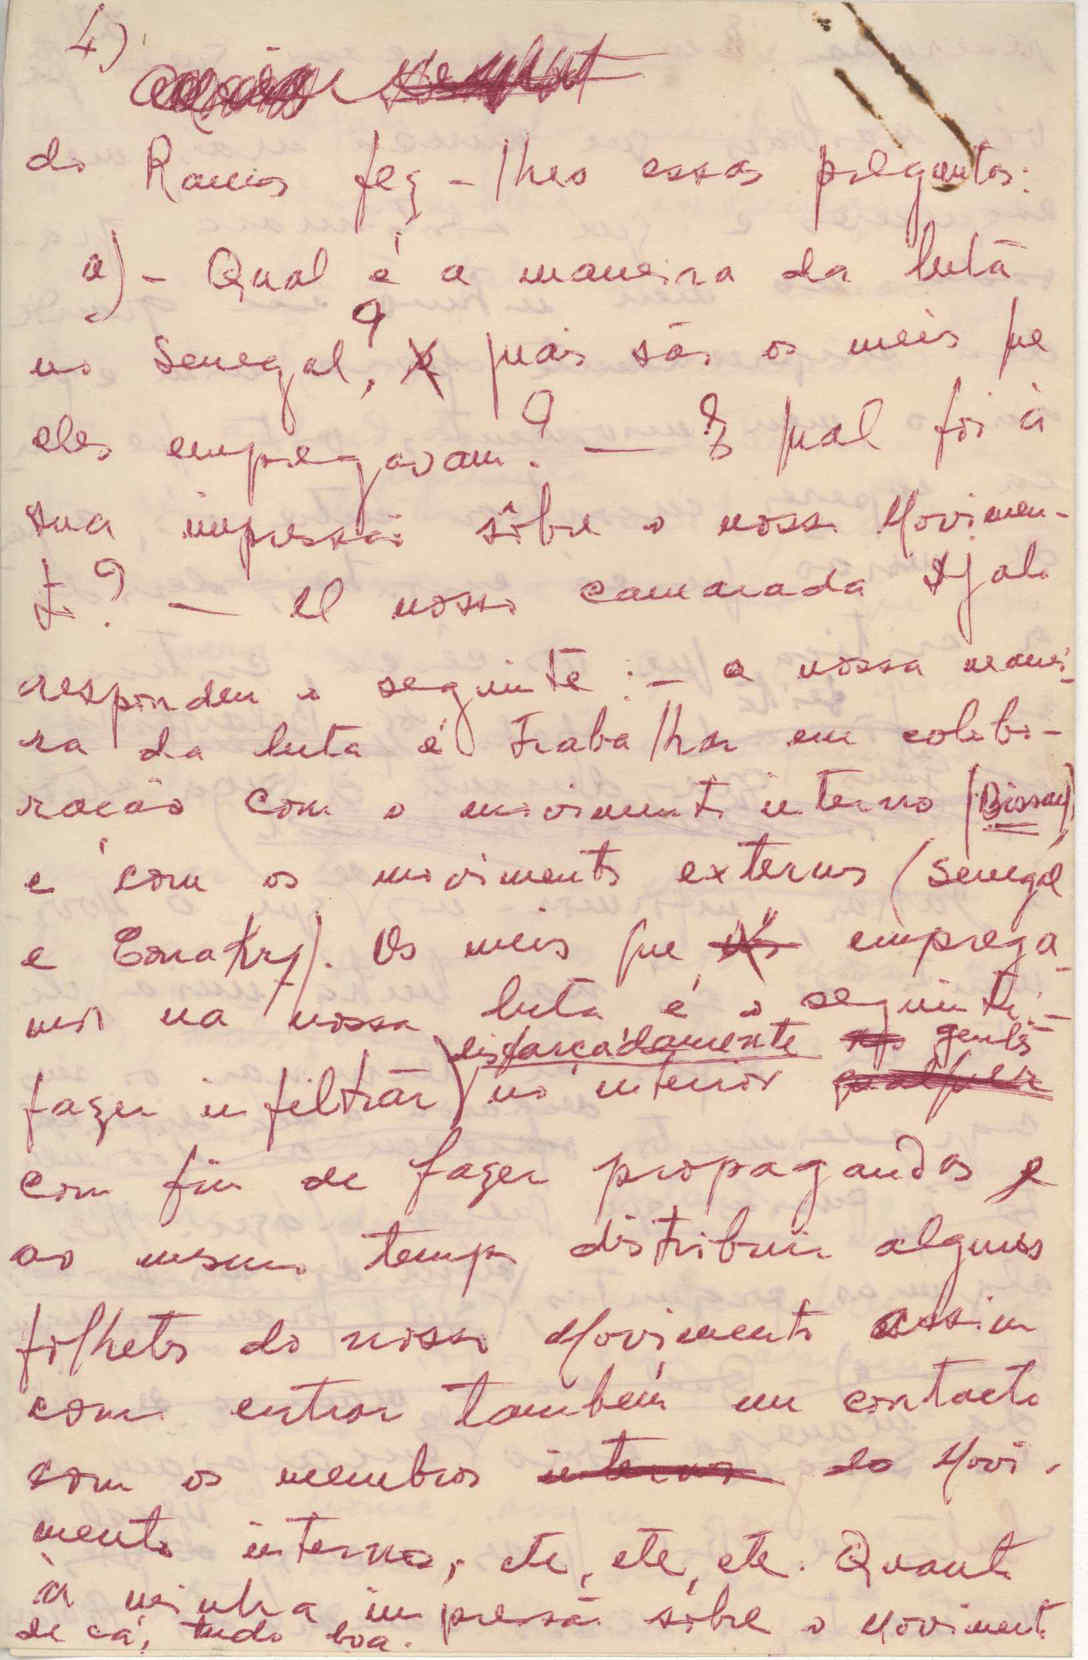 4)
do Ramos fez-lhes essas preguntas:
a) - Qual é a maneira da luta
no Senegal, ? quais são os meis que
eles empregavam? — E qual foi a
sua impressão sôbre o nosso Movimen-
to? — O nosso camarada Djalo
respondeu o seguinte: - a nossa manei-
ra da luta é trabalhar em colabo-
ração com o movimento interno (Bissau)
e com os movimento externos (Senegal
e Conakry). Os meis que emprega-
mos na nossa luta é o seguinte: -
disfarçadamente gentes
fazer infiltrar no interior
com fim de fazer propagandas e
ao mesmo tempo distribuir algumas
folhetos do nosso Movimento assim
como entrar também em contacto
com os membros interno do Movi-
mento interno, etc, etc, etc. Quanto
à minha impressão sôbre o Movimento
de cá, tudo boa.